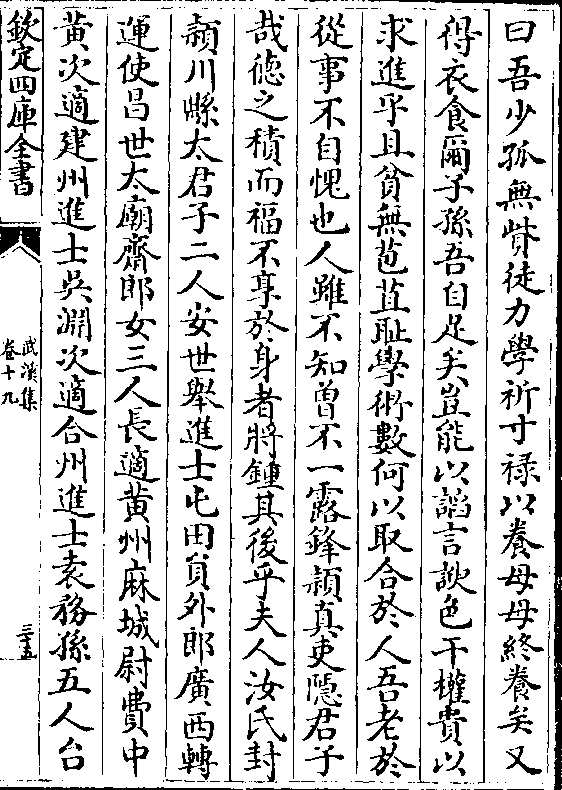 曰吾少孤無貲徒力學祈寸禄以養母母終養矣又
得衣食爾子孫吾自足矣豈能以謟言諛色干權貴以
求進乎且貧無苞苴耻學術數何以取合於人吾老於
從事不自愧也人雖不知曽不一露鋒頴真吏隠君子
哉徳之積而福不享於身者將鍾其後乎夫人汝氏封
頴川縣太君子二人安世舉進士屯田員外郎廣西轉
運使昌世太廟齋郎女三人長適黄州麻城尉費中
黄次適建州進士吳淵次適台州進士袁務孫五人台
欽定四庫全書
武溪集
卷十九
三十五